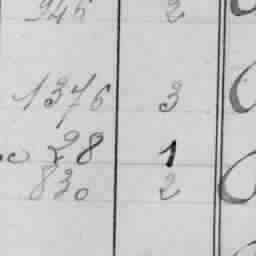 945 2
1376 3
28 1
830 2